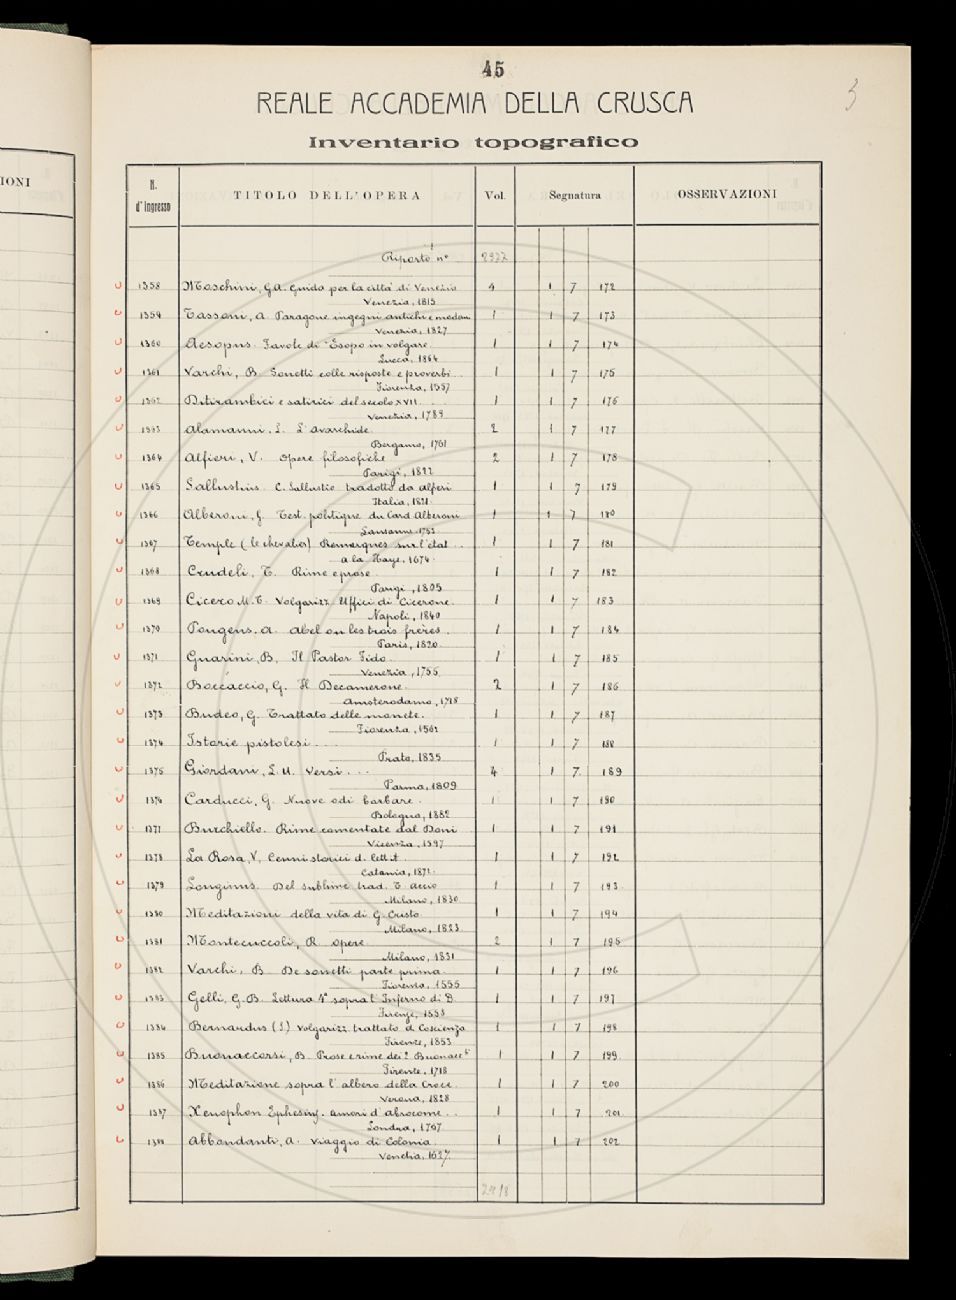 45
3
REALE ACCADEMIA DELLA CRUSCA
Inventario topografico
IONI
N. d'Ingresso TITOLO DELL'OPERA Vol. Segnatura OSSERVAZIONI
Riporto n°
1358 Moschini, G.A. Guida per la città di Venezia 4 1 7 172
Venezia, 1815
1359 Tassoni, A. Paragone ingegni antichi e moderni 1 1 7 173
Venezia, 1827
1360 Aesopus. Favole di Esopo in volgare. 1 1 7 174
Lucca, 1864
1361 Varchi, B. Sonetti colle risposte e proverbi.. 1 1 7 175
Fiorenza, 1557
1362 Ditirambici e satirici del secolo XVII... 1 1 7 176
Venezia, 1789
1363 Alamanni, L. L'Avarchide. 2 1 7 177
Bergamo, 1761
1364 Alfieri, V. Opere filosofiche 2 1 7 178
Parigi, 1822
1365 Sallustius. C. Sallustio tradotto da Alfieri 1 1 7 179
Italia, 1821
1366 Alberoni, G. Test. politique du Card. Alberoni 1 1 7 180
Lausanne 1753
1367 Temple (le chevalier) Remarques sur l'état... 1 1 7 181
a la Haye, 1674.
1368 Crudeli, T. Rime e prose. 1 1 7 182
Parigi, 1805
1369 Cicero M.T. Volgarizz. Uffici di Cicerone. 1 1 7 183
Napoli, 1840
1370 Pougens. A. Abel ou les trois frères. 1 1 7 184
Paris, 1820.
1371 Guarini, B. Il Pastor Fido. 1 1 7 185
Venezia, 1755
1372 Boccaccio, G. Il Decamerone. 2 1 7 186
Amsterodamo, 1718
1373 Budeo, G. Trattato delle monete. 1 1 7 187
Fiorenza, 1562
1374 Istorie pistolesi... 1 1 7 188
Prato, 1835
1375 Giordani, L.U. Versi... 4 1 7. 189
Parma, 1809
1376 Carducci, G. Nuove odi barbare. 1 1 7 190
Bologna, 1882
1377 Burchiello. Rime comentate dal Doni 1 1 7 191
Vicenza, 1597
1378 La Rosa, V. Cenni storici d. lett.ᵃ 1 1 7 192
Catania, 1872.
1379 Longinus. Del sublime trad. T. Accio 1 1 7 193
Milano, 1830.
1380 Meditazioni della vita di G. Cristo 1 1 7 194
Milano, 1823.
1381 Montecuccoli, R. opere 2 1 7 195
Milano, 1831
1382 Varchi, B. De sonetti parte prima. 1 1 7 196
Fiorenza, 1555
1383 Gelli, G.B. Lettura 1ª sopra l'Inferno di D. 1 1 7 197
Firenze, 1553
1384 Bernardus (S.) Volgarizz. trattato d. Coscienza 1 1 7 198
Firenze, 1853
1385 Buonaccorsi, B. Prose e rime dei 2 Buonacc.ⁱ 1 1 7 199
Firenze, 1718
1386 Meditazione sopra l'albero della Croce. 1 1 7 200
Verona, 1828
1387 Xenophon Ephesiuj. Amori d'Abrocome.. 1 1 7 201
Londra, 1767
1388 Abbondanti, A. Viaggio di Colonia. 1 1 7 202
Venetia, 1627.